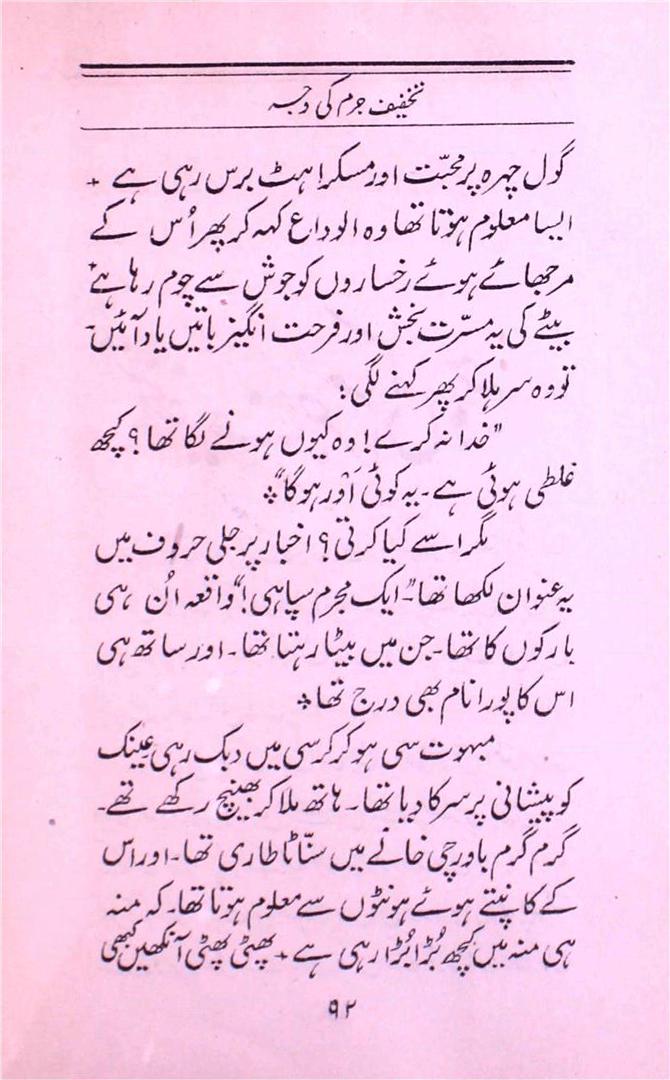 تخفیف جرم کی وجہ
گول چہرہ پر محبّت اور مسکراہٹ برس رہی ہے +
ایسا معلوم ہوتا تھا وہ الوداع کہہ کر پھر اُس کے
مرجھائے ہوئے رخساروں کو جوش سے چوم رہا ہے +
بیٹے کی یہ مسرّت بخش اور فرحت انگیز باتیں یاد آئیں۔
تو وہ سر ہلا کر پھر کہنے لگی؛
"خدا نہ کرے! وہ کیوں ہونے لگا تھا؟ کچھ
غلطی ہوئی ہے۔ یہ کوئی اَور ہوگا"٭
مگر اسے کیا کرتی؟ اخبار پر جلی حروف میں
یہ عنوان لکھا تھا۔ "ایک مجرم سپاہی!" واقعہ اُن ہی
بارکوں کا تھا۔ جن میں بیٹا رہتا تھا۔ اور ساتھ ہی
اس کا پورا نام بھی درج تھا٭
مبہوت سی ہو کر کرسی میں دبک رہی عینک
کو پیشانی پر سرکا دیا تھا۔ ہاتھ ملا کر بھینچ رکھے تھے۔
گرم گرم باورچی خانے میں سنّاٹا طاری تھا۔ اور اس
کے کانپتے ہوئے ہونٹوں سے معلوم ہوتا تھا۔ کہ منہ
ہی منہ میں کچھ بُڑابُڑا رہی ہے + پھٹی پھٹی آنکھیں کبھی
۹۲